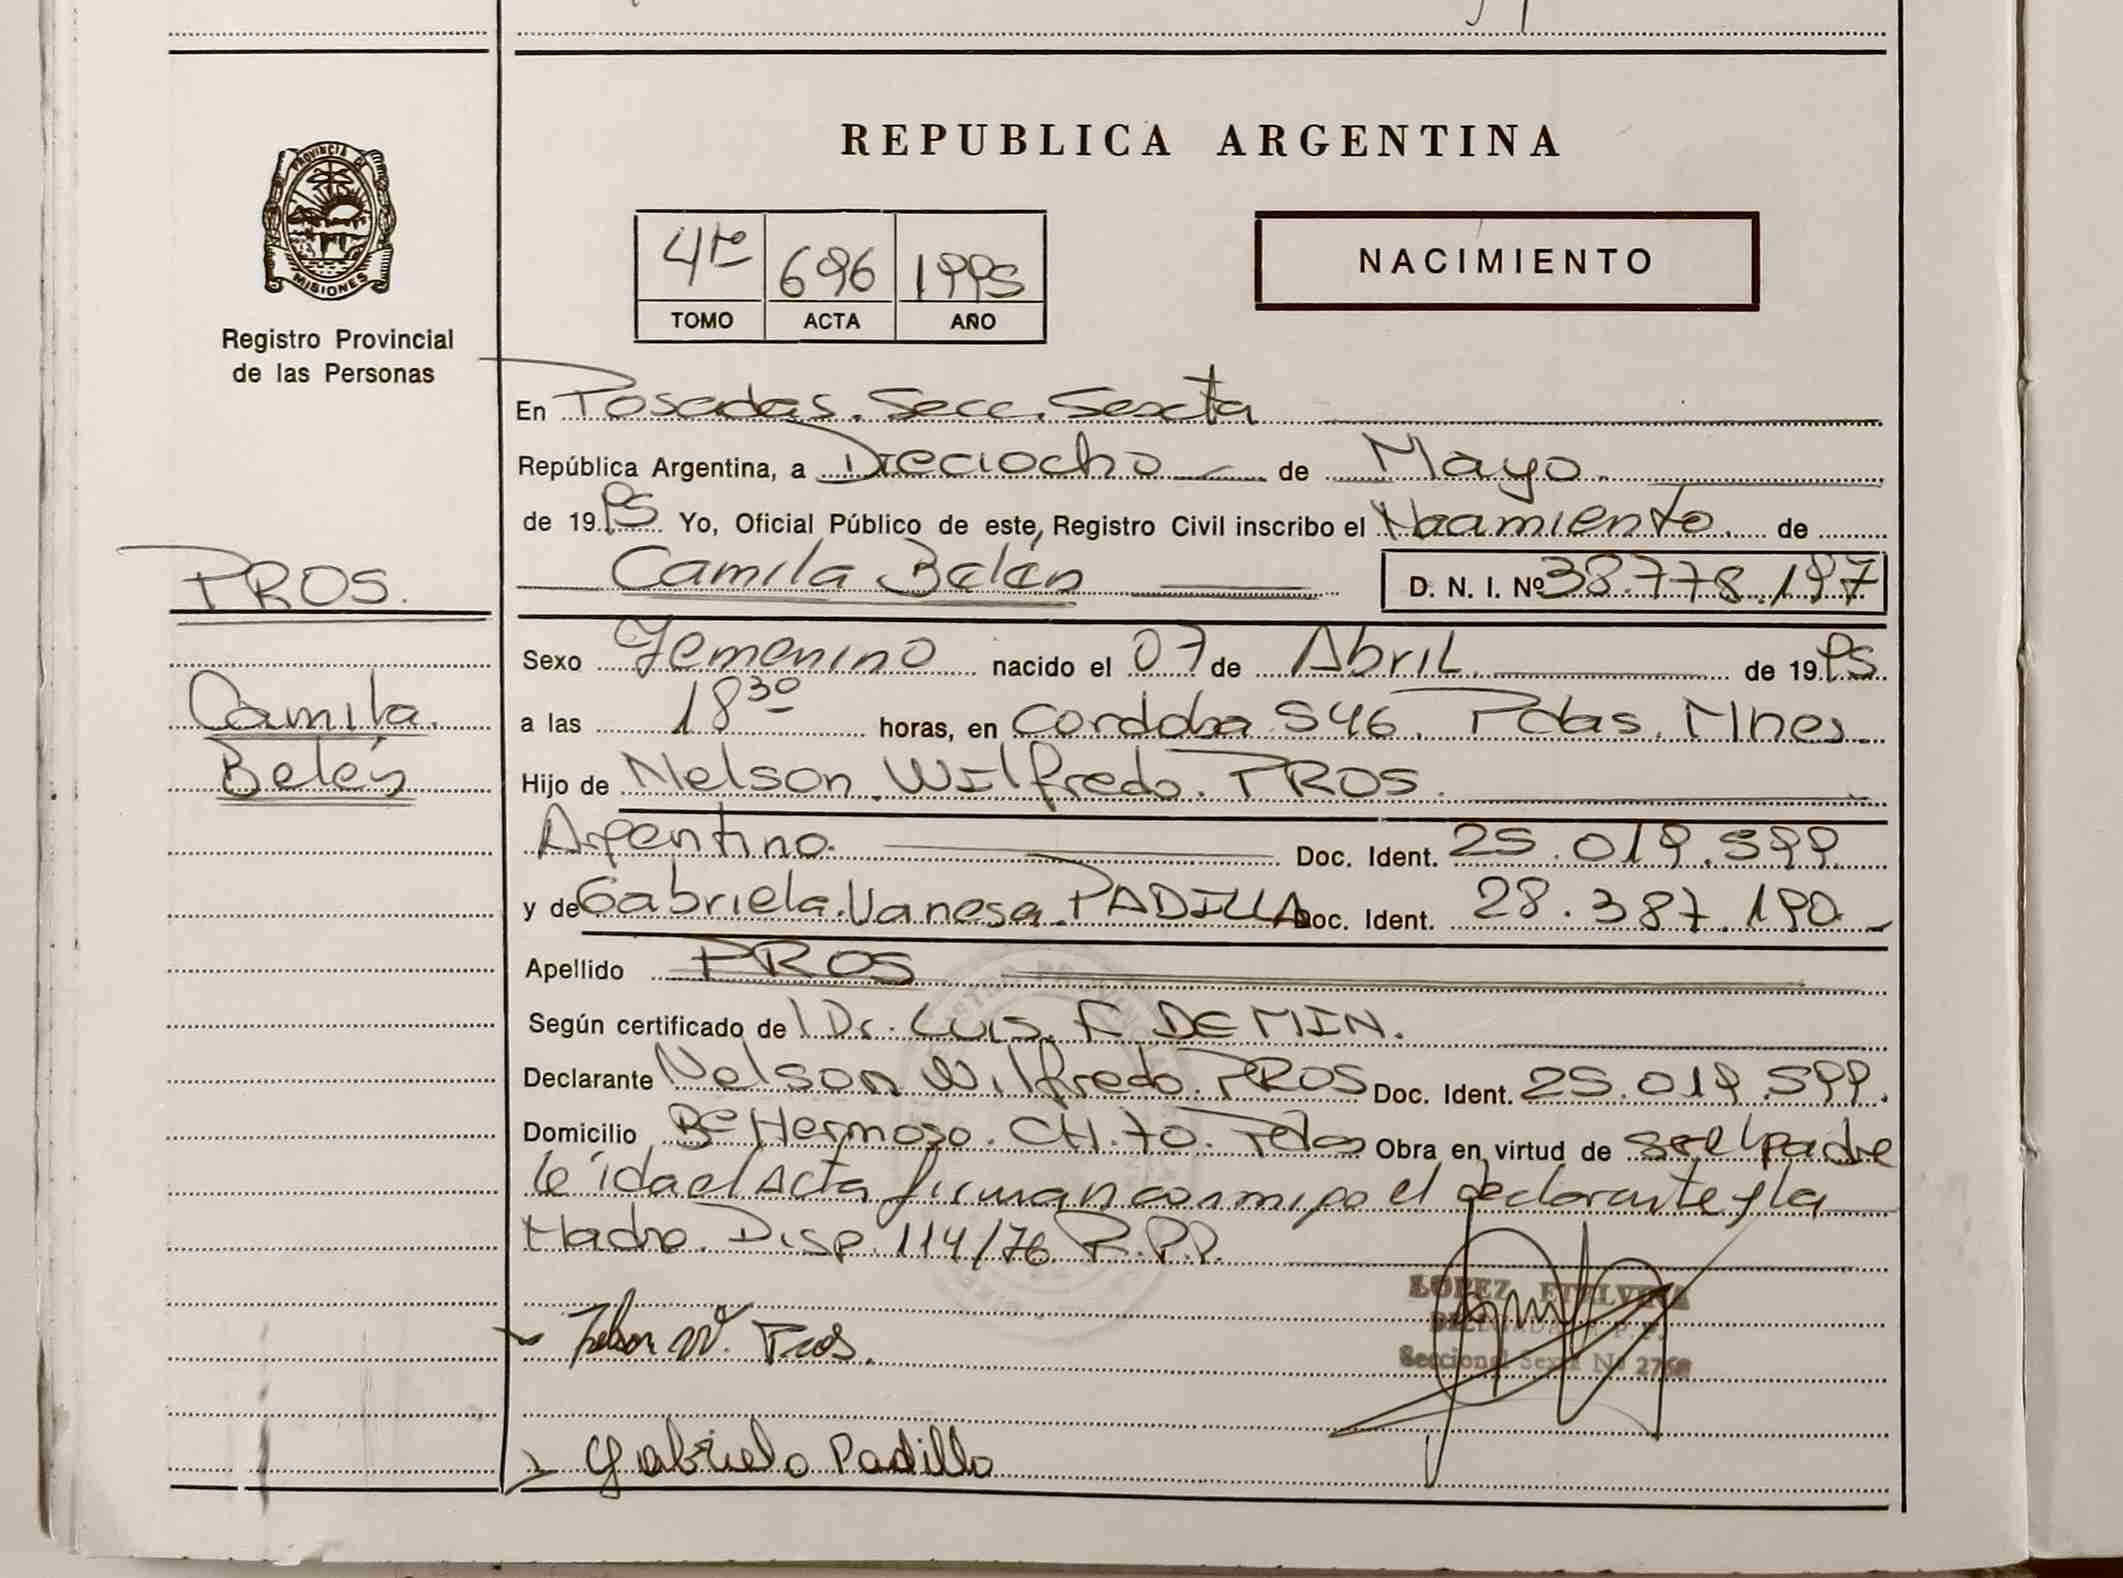 REPUBLICA ARGENTINA
PROVINCIA DE
MISIONES
Registro Provincial
de las Personas
4to 696 1995
TOMO ACTA AÑO
NACIMIENTO
En Posadas. Secc. Sexta
República Argentina, a Dieciocho de Mayo
de 1995 Yo, Oficial Público de este, Registro Civil inscribo el Nacimiento de
Camila Belén D. N. I. Nº 38.778.197
PROS.
Camila
Belén
Sexo Femenino nacido el 07 de Abril de 1995
a las 18 30 horas, en Cordoba 546. Pdas. Mnes.
Hijo de Nelson Wilfredo. PROS.
Argentino. Doc. Ident. 25.019.599
y de Gabriela Vanesa PADILLA Doc. Ident. 28.387.190
Apellido PROS
Según certificado de l Dr. Luis. F. DEMIN.
Declarante Nelson Wilfredo. PROS Doc. Ident. 25.019.599.
Domicilio Bº Hermoso. CH. 70. Pdas Obra en virtud de ser el padre
leída el Acta firman conmigo el declarante y la
Madre. Disp. 114/76 R.P.P.
LOPEZ, ETELVINA
Seccional Sexta Nº 2768
Nelson W. Pros.
Gabriela Padilla